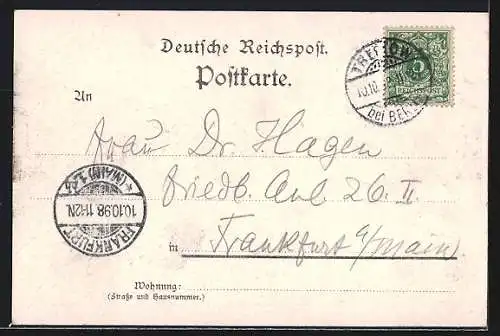 Deutsche Reichspost.
Postkarte.
TREPTOW
10.10.
bei BERLIN
5
REICHSPOST
An
Frau Dr. Hagen
Friedb. Anl 26. II
in Frankfurt a/Main)
* (MAIN) 1.
10.10.98 11-12N.
FRANKFURT
Wohnung:
(Straße und Hausnummer.)